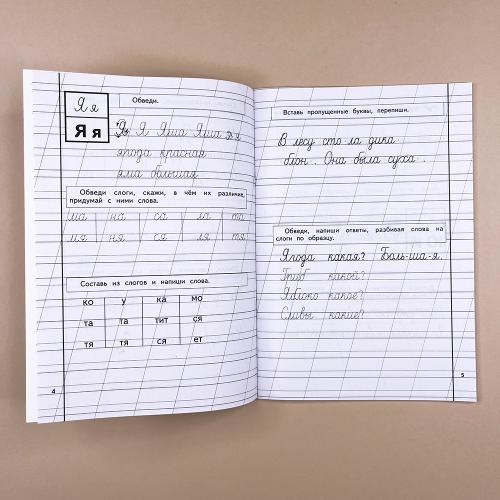 Я я
Я я
Обведи.
Я Я Яша Яша я я
ягода красная
яма большая
Обведи слоги, скажи, в чём их различие,
придумай с ними слова.
ша на са ла та
мя ня ся ля тя
Составь из слогов и напиши слова.
ко у ка мо
та та тит ся
тя тя ся ет
4
Вставь пропущенные буквы, перепиши.
В лесу сто ла дика
блон . Она была суха .
Обведи, напиши ответы, разбивая слова на
слоги по образцу.
Ягода какая? Боль-ша-я.
Гриб какой?
Яблоко какое?
Сливы какие?
5